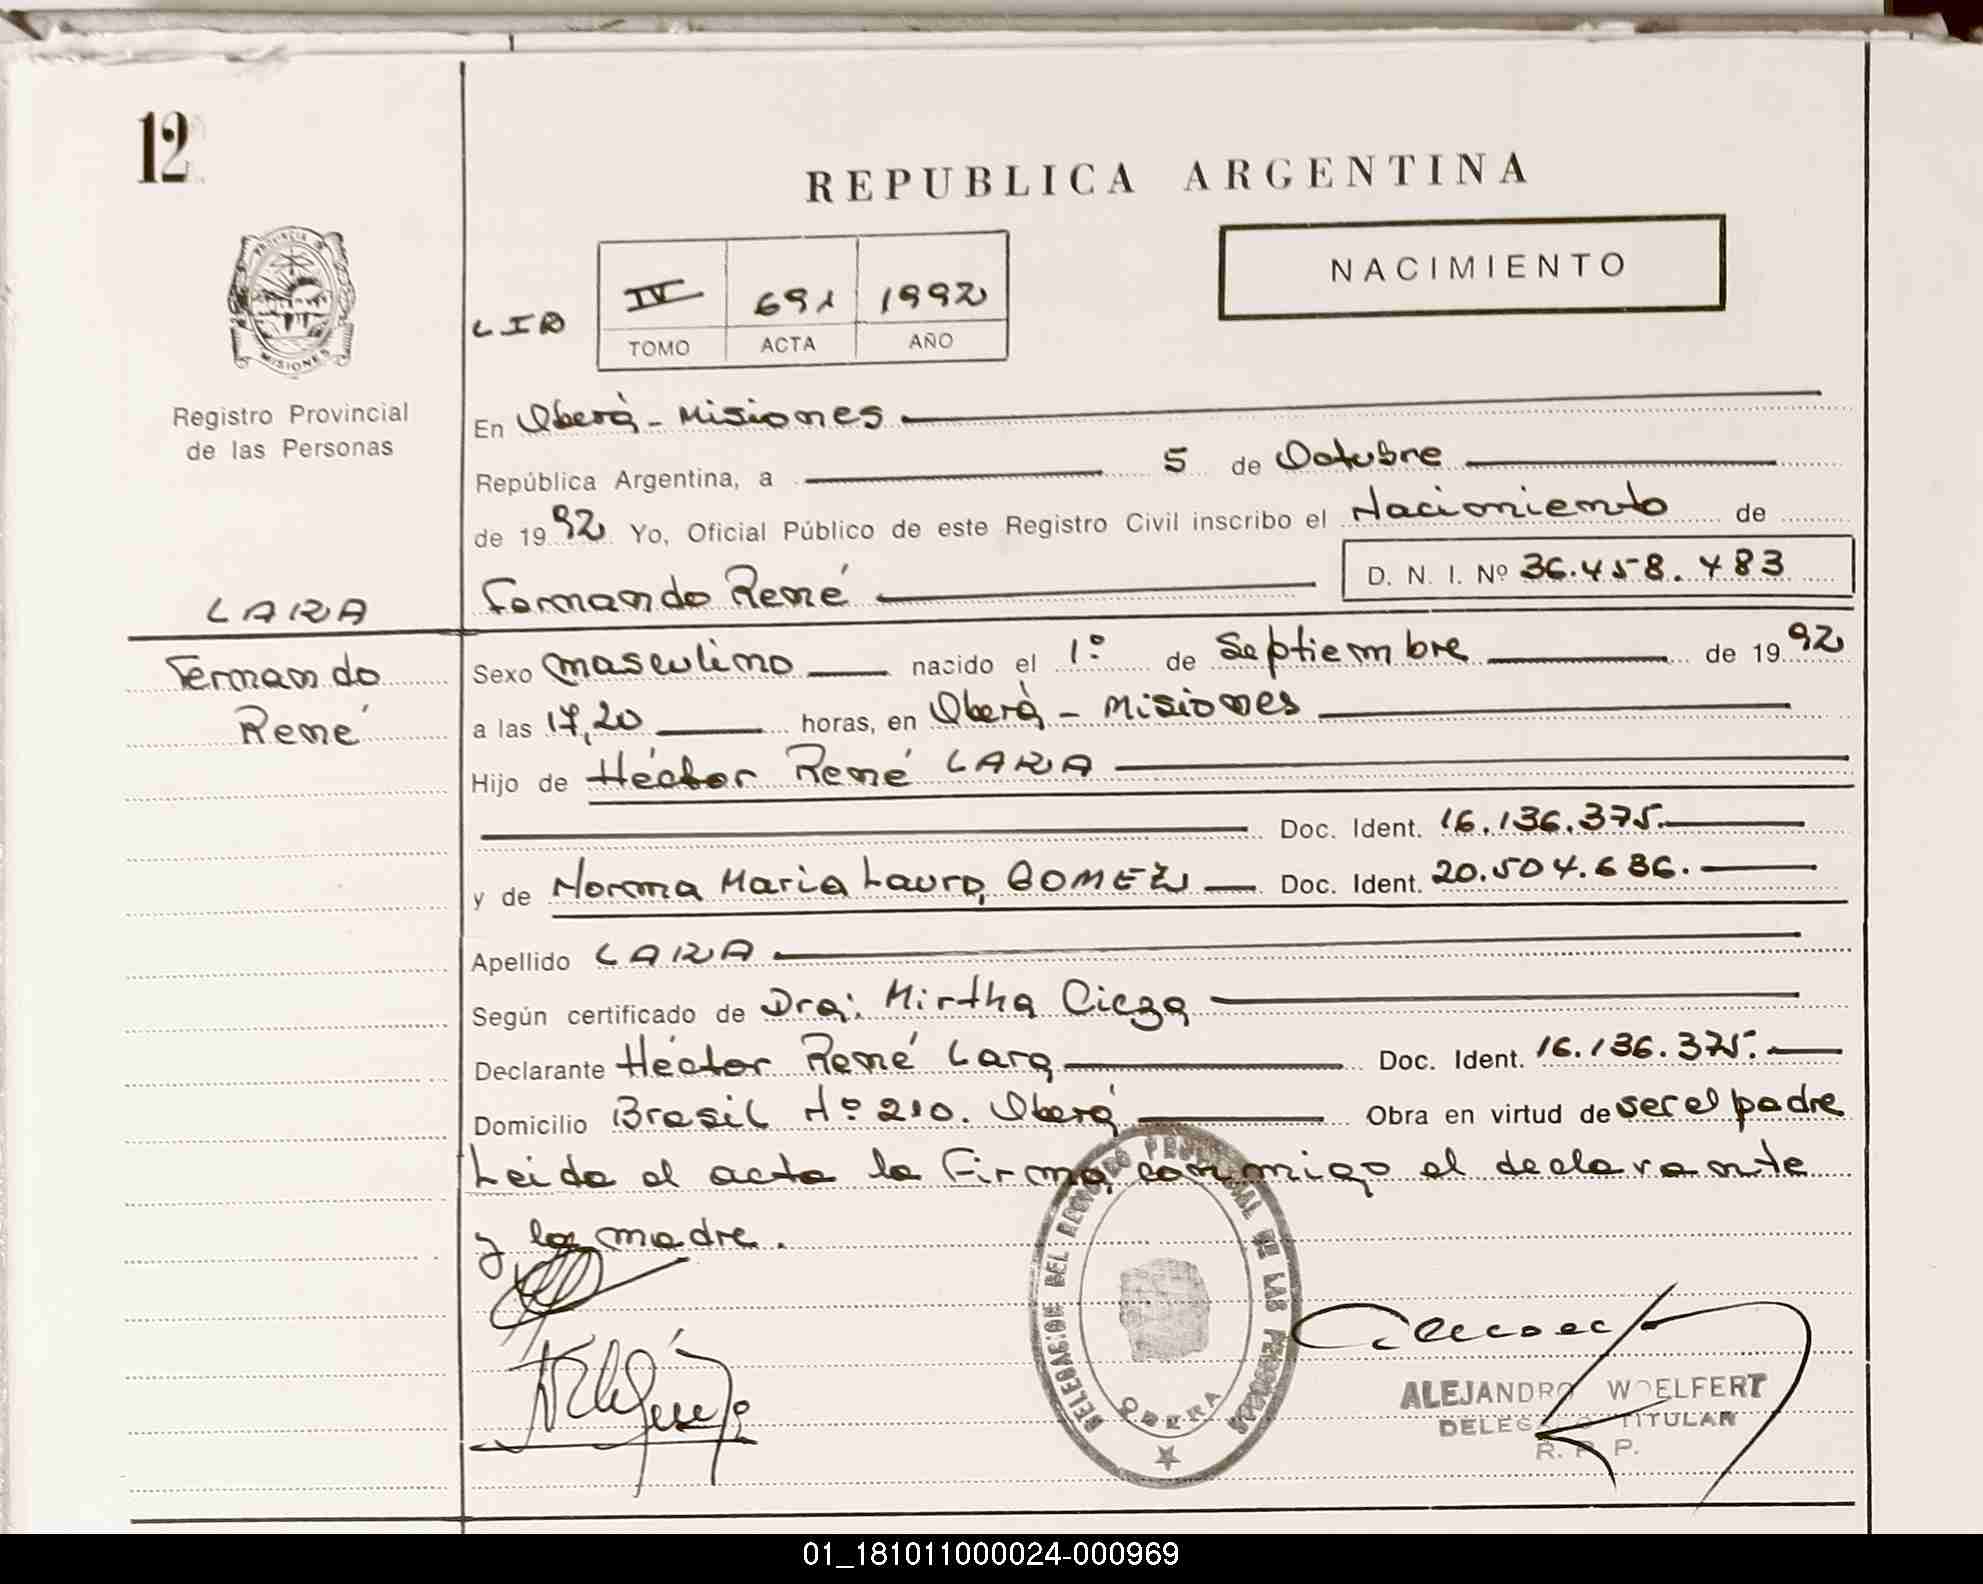 12
REPUBLICA ARGENTINA
NACIMIENTO
LIB IV 691 1992
TOMO ACTA AÑO
PROVINCIA DE MISIONES
Registro Provincial
de las Personas
En Oberá - Misiones
República Argentina, a 5 de Octubre
de 1992 Yo, Oficial Público de este Registro Civil inscribo el Nacimiento de
Fernando René D. N. I. Nº 36.458.483
LARA
Fernando
René
Sexo masculino nacido el 1º de Septiembre de 1992
a las 17,20 horas, en Oberá - Misiones
Hijo de Héctor René LARA
Doc. Ident. 16.136.375.
y de Norma Maria Laura GOMEZ Doc. Ident. 20.504.686.
Apellido LARA
Según certificado de Dra: Mirtha Cieza
Declarante Héctor René Lara Doc. Ident. 16.136.375.
Domicilio Brasil Nº 210. Oberá Obra en virtud de ser el padre
Leida el acta la Firma conmigo el declarante
y la madre.
DELEGACION DEL REGISTRO PROVINCIAL DE LAS PERSONAS
OBERA
ALEJANDRO WOELFERT
DELEGADO TITULAR
R. P. P.
01_181011000024-000969